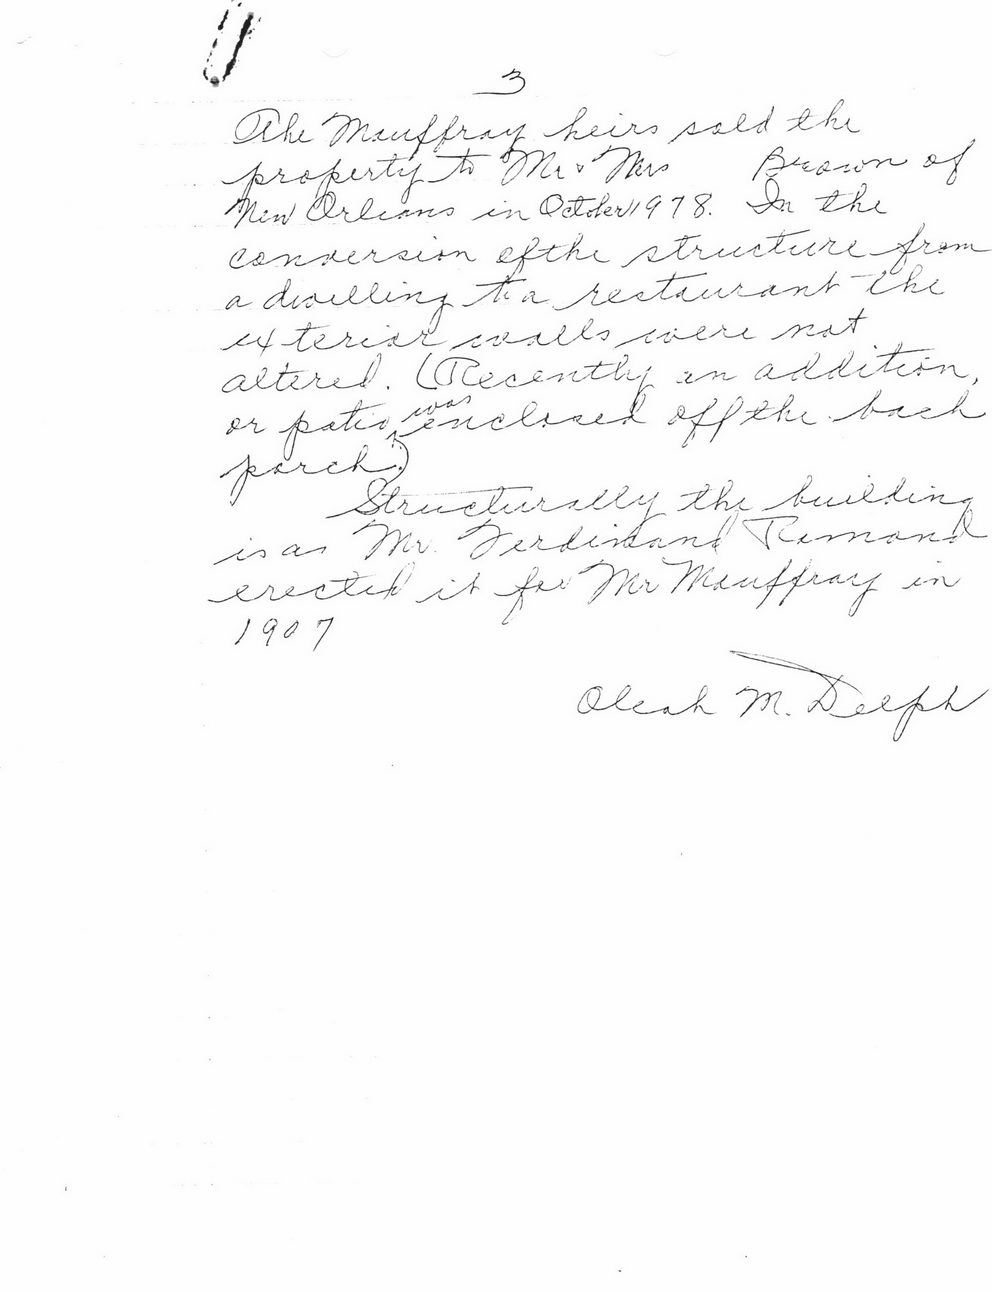 3
The Mauffray heirs sold the
property to Mr & Mrs Brown of
New Orleans in October 1978. In the
conversion of the structure from
a dwelling to a restaurant the
exterior walls were not
altered. (Recently an addition,
or patio was enclosed off the back
porch.)
Structurally the building
is as Mr. Ferdinand Ramond
erected it for Mr Mauffray in
1907
Oleah M. Delph